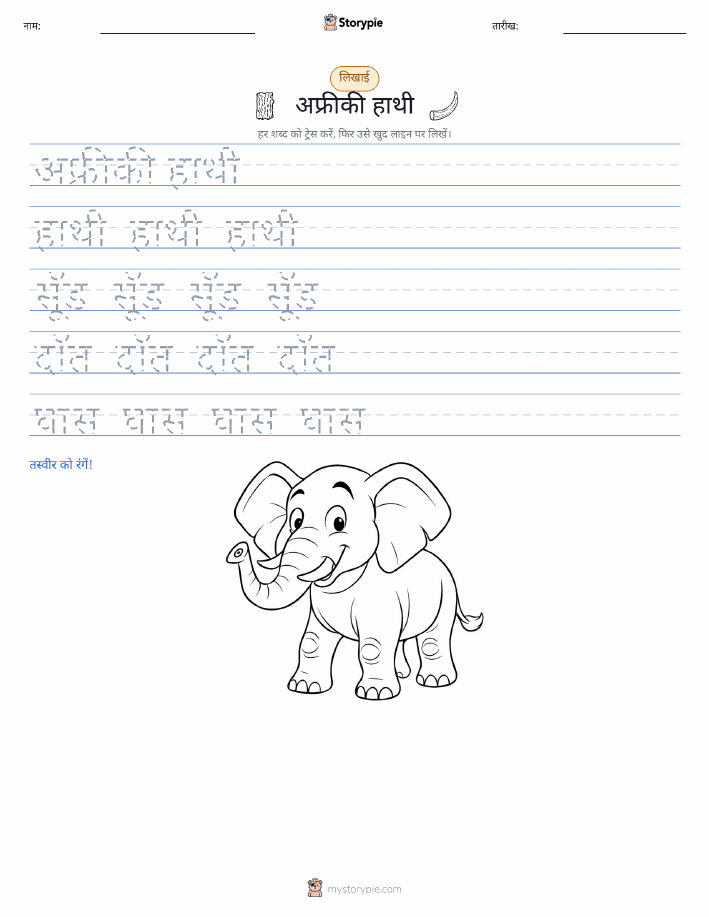 नाम:
Storypie
तारीख:
लिखाई
अफ्रीकी हाथी
हर शब्द को ट्रेस करें, फिर उसे खुद लाइन पर लिखें।
अफ्रीकी हाथी
हाथी हाथी हाथी
सूँड सूँड सूँड सूँड
दाँत दाँत दाँत दाँत
घास घास घास घास
तस्वीर को रंगें!
mystorypie.com